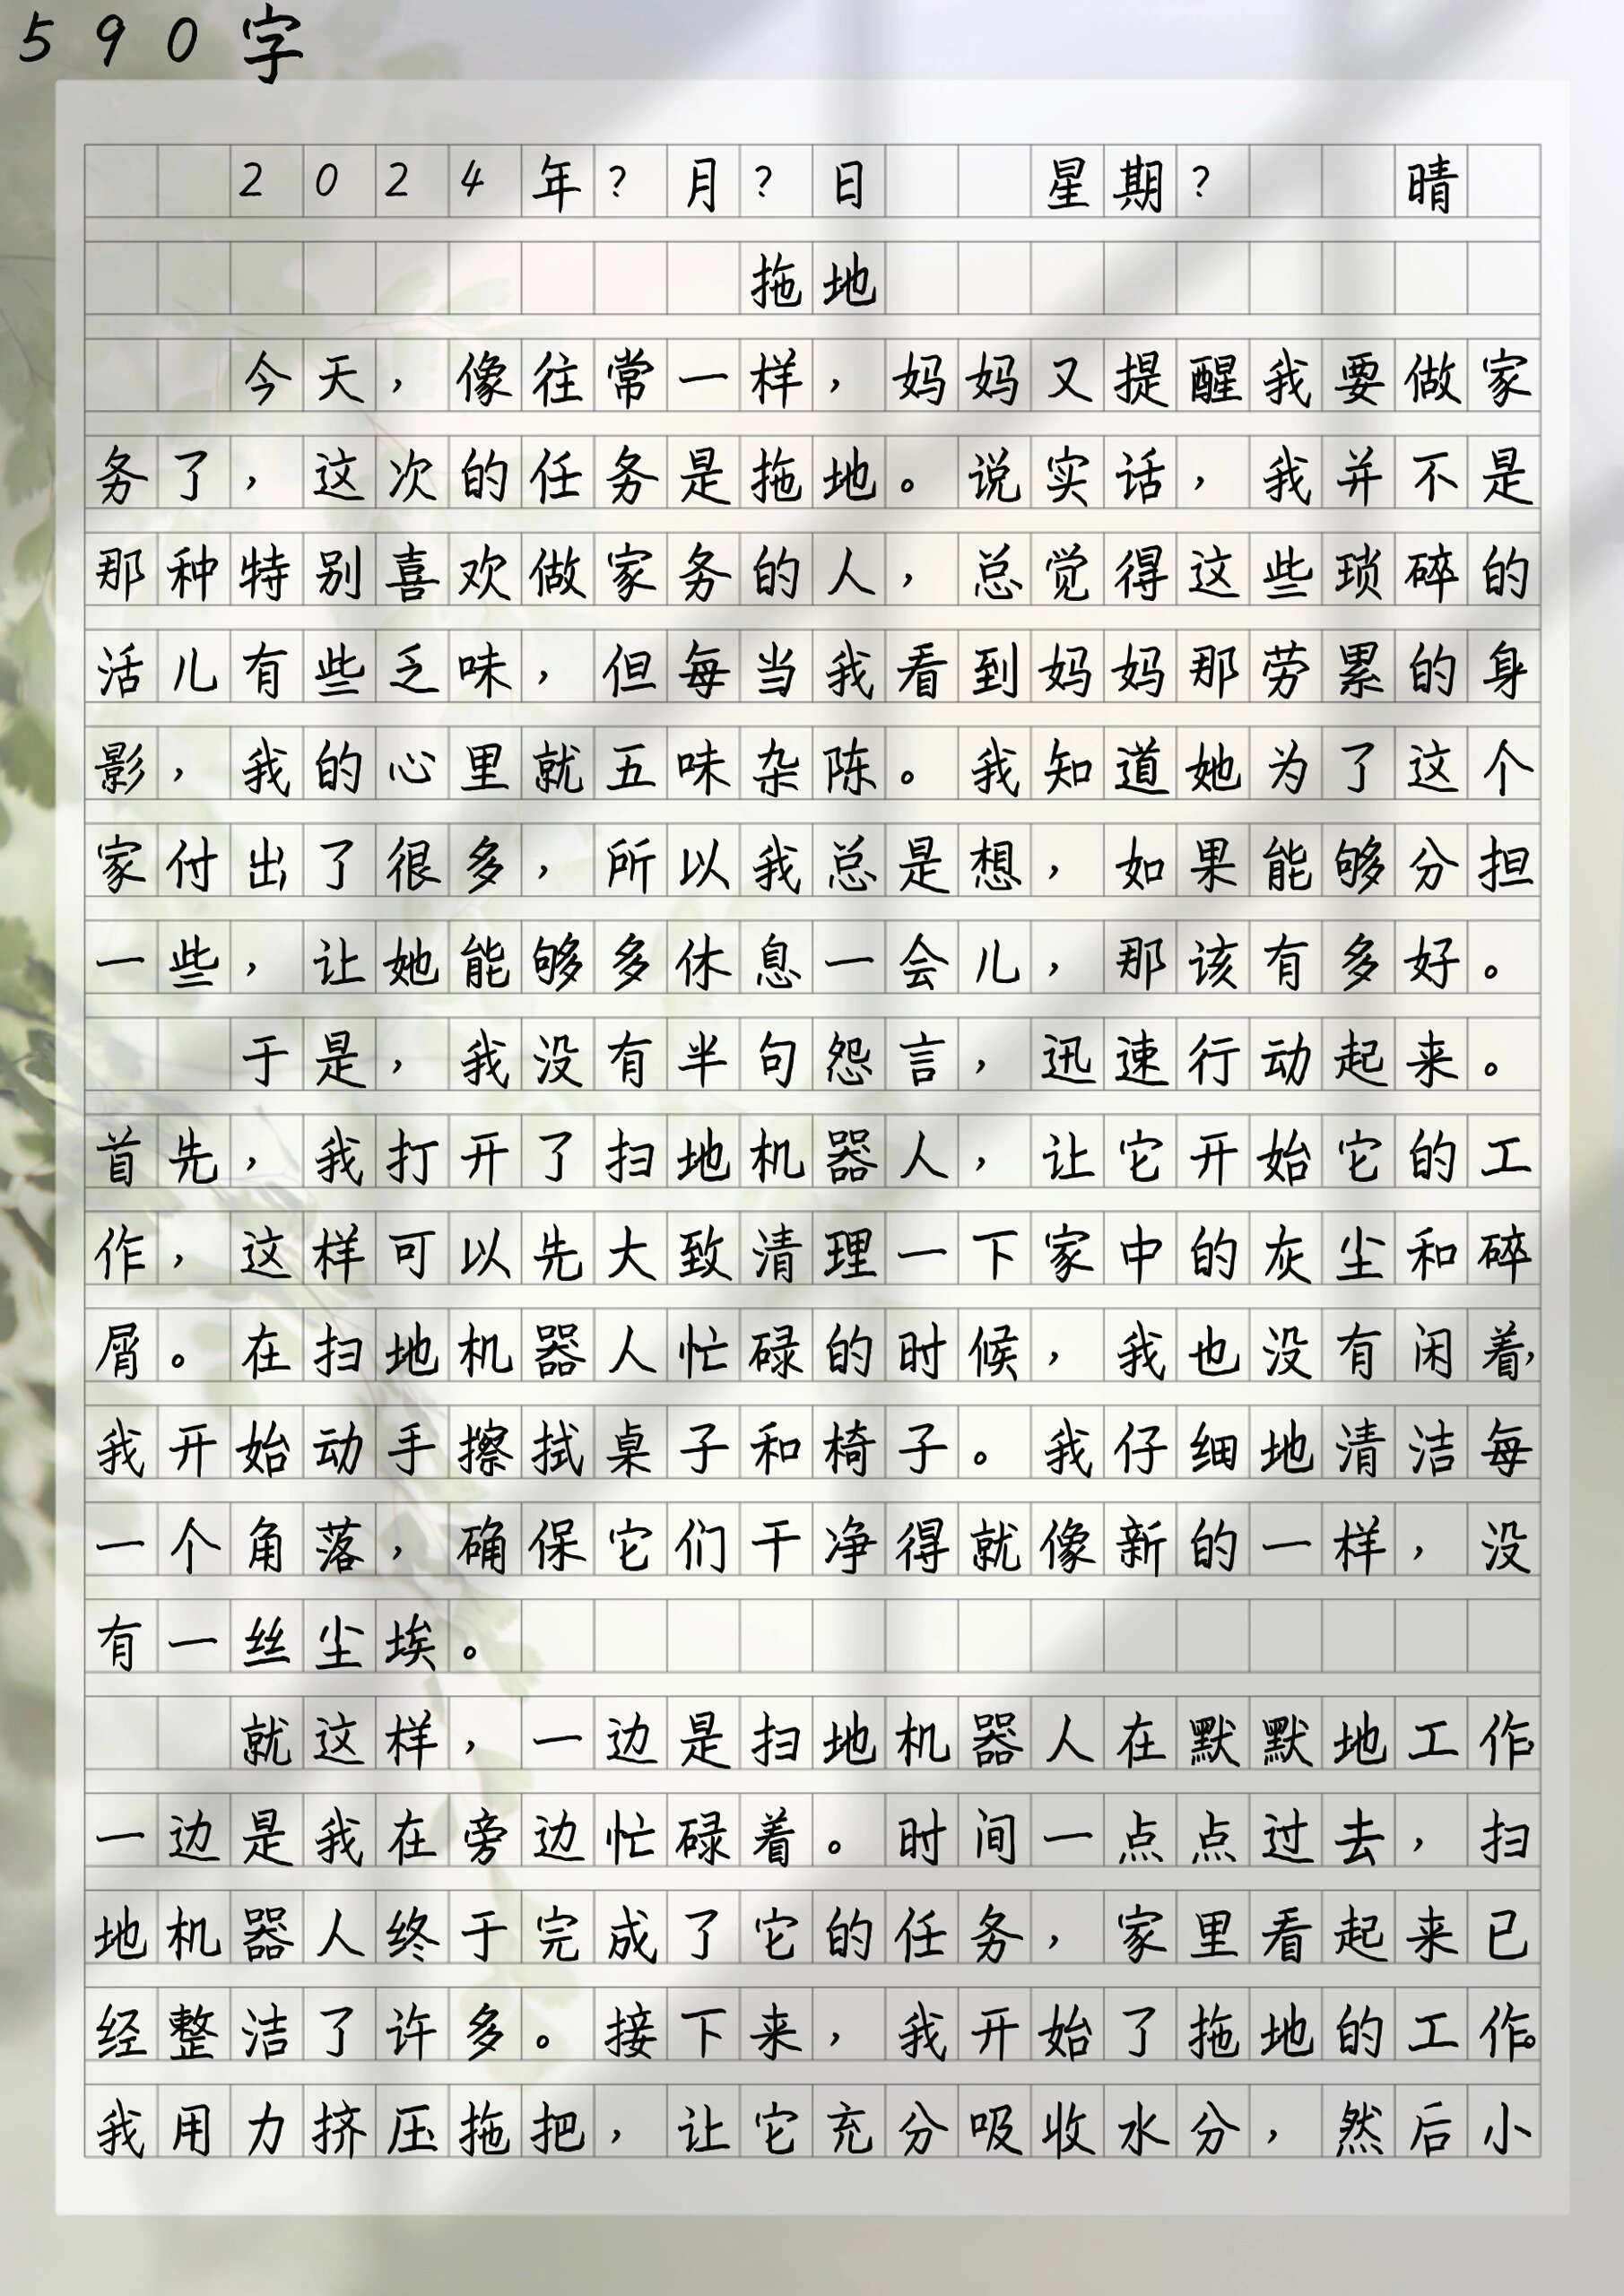 590字
2024年?月?日 星期? 晴
拖地
今天，像往常一样，妈妈又提醒我要做家
务了，这次的任务是拖地。说实话，我并不是
那种特别喜欢做家务的人，总觉得这些琐碎的
活儿有些乏味，但每当我看到妈妈那劳累的身
影，我的心里就五味杂陈。我知道她为了这个
家付出了很多，所以我总是想，如果能够分担
一些，让她能够多休息一会儿，那该有多好。
于是，我没有半句怨言，迅速行动起来。
首先，我打开了扫地机器人，让它开始它的工
作，这样可以先大致清理一下家中的灰尘和碎
屑。在扫地机器人忙碌的时候，我也没有闲着，
我开始动手擦拭桌子和椅子。我仔细地清洁每
一个角落，确保它们干净得就像新的一样，没
有一丝尘埃。
就这样，一边是扫地机器人在默默地工作，
一边是我在旁边忙碌着。时间一点点过去，扫
地机器人终于完成了它的任务，家里看起来已
经整洁了许多。接下来，我开始了拖地的工作。
我用力挤压拖把，让它充分吸收水分，然后小